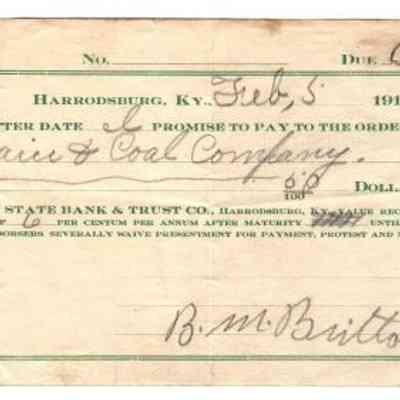 No. DUE
HARRODSBURG, KY., Feb, 5 191
TER DATE I PROMISE TO PAY TO THE ORDE
& Coal Company.
00/100 DOLL
STATE BANK & TRUST CO., HARRODSBURG, KY. VALUE REC
6 PER CENTUM PER ANNUM AFTER MATURITY UNTI
DORSERS SEVERALLY WAIVE PRESENTMENT FOR PAYMENT, PROTEST AND
B. M. Britto